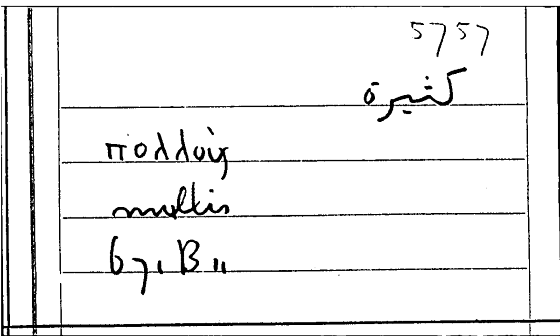 5757
كثيرة
πολλοῖς
multis
67, B 11